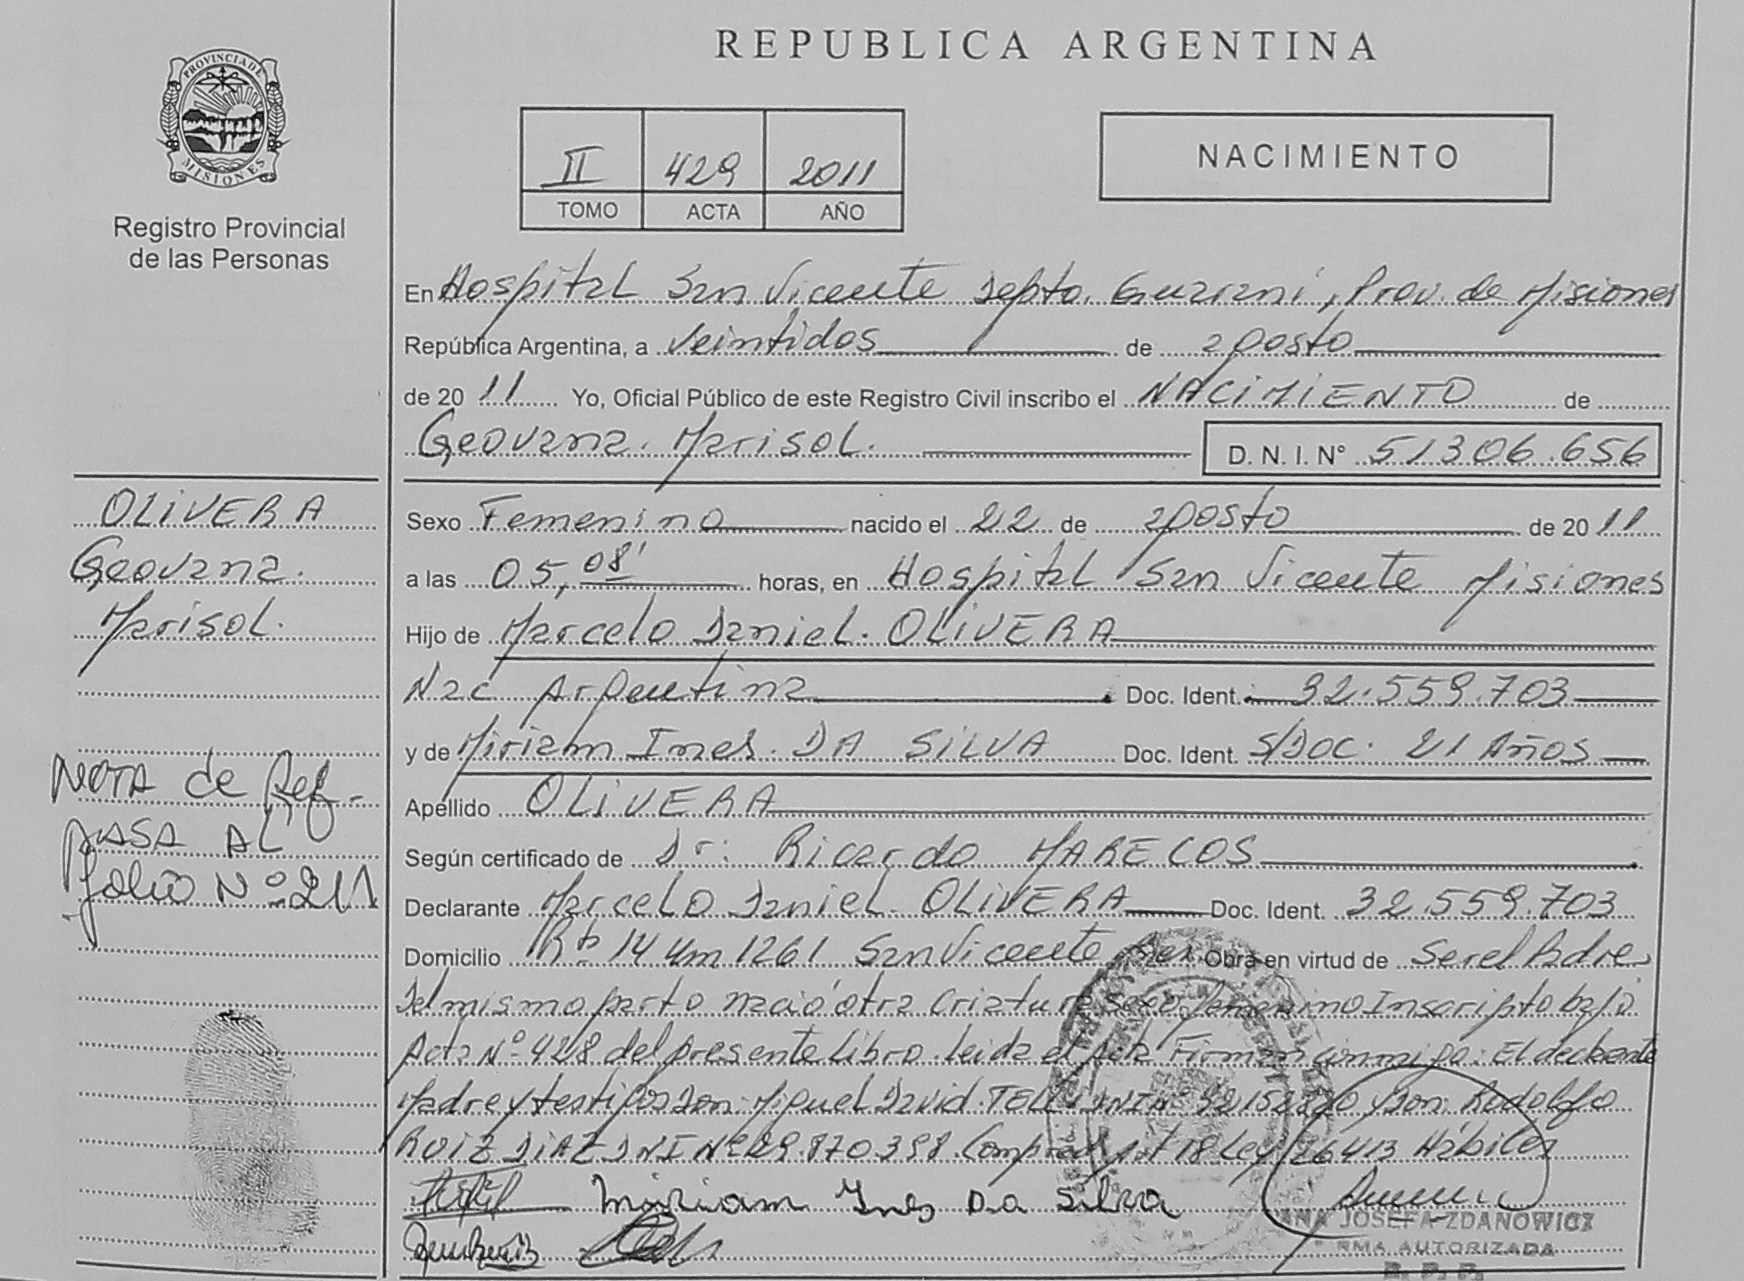 PROVINCIA DE
MISIONES
Registro Provincial
de las Personas
REPUBLICA ARGENTINA
II 429 2011
TOMO ACTA AÑO
NACIMIENTO
En Hospital San Vicente Depto. Guarani, Prov. de Misiones
República Argentina, a veintidos de agosto
de 20 11 Yo, Oficial Público de este Registro Civil inscribo el NACIMIENTO de
Geovana Marisol.
D. N. I. N° 51306.656
OLIVERA
Geovana.
Marisol.
Sexo Femenino nacido el 22 de agosto de 20 11
a las 05, 08' horas, en Hospital San Vicente Misiones
Hijo de Marcelo Daniel. OLIVERA
Nac Argentina Doc. Ident. 32.559.703
y de Miriam Ines. DA SILVA Doc. Ident. S/DOC. 21 Años
Apellido OLIVERA
Según certificado de Dr: Ricardo MARECOS
Declarante Marcelo Daniel. OLIVERA Doc. Ident. 32.559.703
Domicilio 14 Km 1261 San Vicente Obra en virtud de Ser el Padre
Del mismo parto nació otra criatura sexo femenino Inscripto bajo
Acta N° 428 del presente Libro. Leida el Acta Firman conmigo: El declarante
Madre y testigos Don: Miguel David. Don: Rodolfo
RUIZ DIAZ DNI N° 29.870.398. Comprend Art 18 Ley 26413 Hábiles
NOTA de Ref.
PASA AL
folio N° 211
Miriam Ines Da Silva
ANA JOSEFA ZDANOWICZ
FIRMA AUTORIZADA
R. P. P.